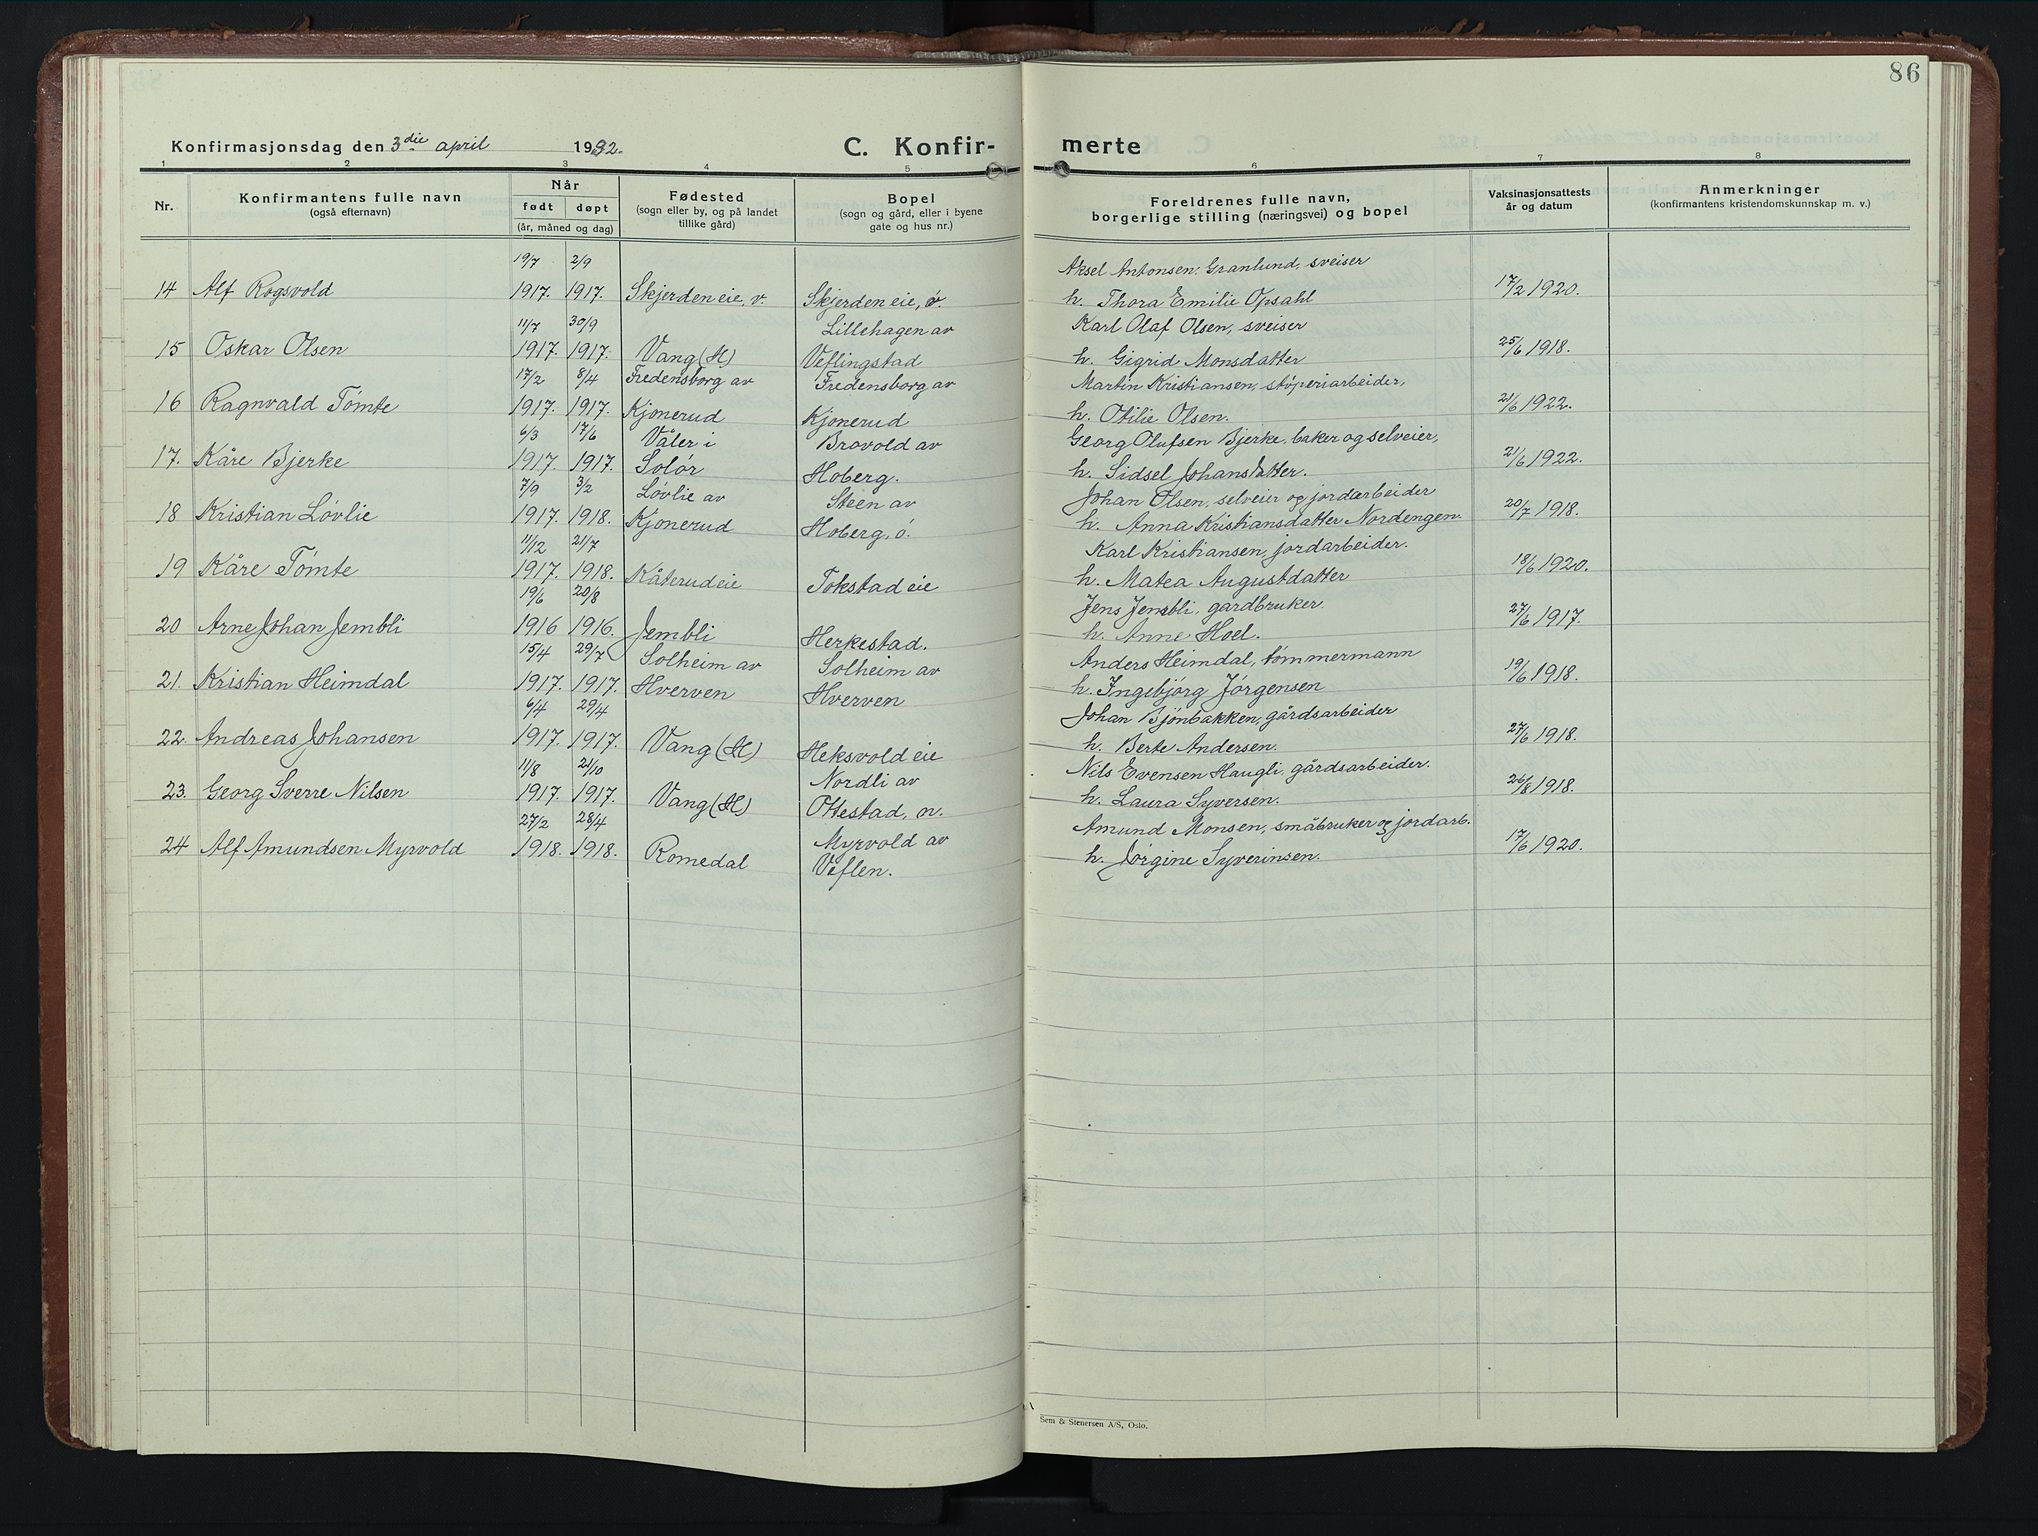 86
Konfirmasjonsdag den 3die april 1932.
C. Konfir-
merte
1 2 3 4 5 6 7 8
Nr.
Konfirmantens fulle navn
(også efternavn)
Når
født døpt
(år, måned og dag)
Fødested
(sogn eller by, og på landet
tillike gård)
Bopel
(sogn og gård, eller i byene
gate og hus nr.)
Foreldrenes fulle navn,
borgerlige stilling (næringsvei) og bopel
Vaksinasjonsattests
år og datum
Anmerkninger
(konfirmantens kristendomskunnskap m. v.)
19/7 2/9 Aksel Antonsen Granlund, sveiser
14 Alf Rogsvold 1917. 1917. Skjerden eie, v. Skjerden eie, ø. h. Thora Emilie Opsahl 17/2 1920.
11/7 30/9 Lillehagen av Karl Olaf Olsen, sveiser
15 Oskar Olsen 1917. 1917. Vang (H) Veflingstad h. Gigrid Monsdatter 25/6 1918.
17/2 8/4 Fredensborg av Fredensborg av Martin Kristiansen, støperiarbeider,
16 Ragnvald Tømte 1917. 1917. Kjonerud Kjonerud h. Otilie Olsen. 21/6 1922.
6/3 17/6 Våler i Brovold av Georg Olufsen Bjerke, baker og selveier,
17. Kåre Bjerke 1917. 1917. Solør Hoberg. h. Sidsel Johansdatter. 21/6 1922.
7/9 3/2 Løvlie av Steen av Johan Olsen, selveier og jordarbeider
18 Kristian Løvlie 1917. 1918. Kjonerud Hoberg, ø. h. Anna Kristiansdatter Nordengen. 20/7 1918.
11/12 21/7 Karl Kristiansen, jordarbeider.
19 Kåre Tømte 1917. 1918. Kåterud eie Tokstad eie h. Matea Augustdatter 18/6 1920.
19/6 20/8 Jens Jembli, gardbruker.
20 Arne Johan Jembli 1916 1916. Jembli Herkestad. h. Anne Hoel. 27/6 1917.
15/4 29/7 Solheim av Solheim av Anders Heimdal, tømmermann
21. Kristian Heimdal 1917. 1917. Hverven Hverven h. Ingebjørg Jørgensen 19/6 1918.
6/4 29/4 Johan Bjønbakken, gårdsarbeider
22. Andreas Johansen 1917. 1917. Vang (H) Heksvold eie h. Berte Andersen. 27/6 1918.
11/8 21/10 Nordli av Nils Evensen Haugli, gårdsarbeider.
23. Georg Sverre Nilsen 1917. 1917. Vang (H) Ottestad, n. h. Laura Syversen. 26/8 1918.
27/2 28/4 Myrvold av Amund Monsen, småbruker og jordarb.
24 Alf Amundsen Myrvold 1918. 1918. Romedal Veflen. h. Jørgine Syverinsen. 17/6 1920.
Sem & Stenersen A/S, Oslo.